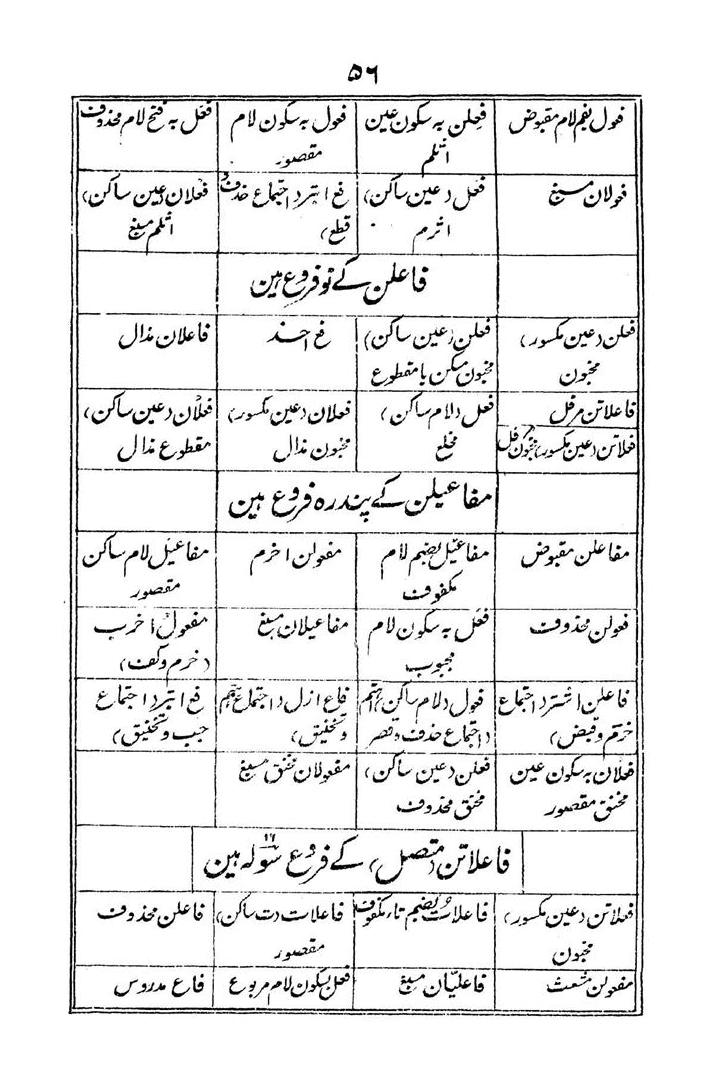 ۵۶
فعول بضم لام مقبوض
فعلن بہ سکون عین اثلم
فعول بہ سکون لام مقصور
فعل بہ فتح لام محذوف
فعولان مسبغ
فعل (عین ساکن) اثرم
فع ابتر (اجتماع حذف و قطع)
فعلان (عین ساکن) اثلم مسبغ
فاعلن کے نو فروع ہین
فعلن (عین مکسور) مخبون
فعلن (عین ساکن) مخبون مسکن یا مقطوع
فع احذ
فاعلان مذال
فاعلاتن مرفل
فعلاتن (عین مکسور) مخبون مرفل
فعل (لام ساکن) مخلع
فعلان (عین مکسور) مخبون مذال
فعلان (عین ساکن) مقطوع مذال
مفاعیلن کے پندرہ فروع ہین
مفاعلن مقبوض
مفاعیل بضم لام مکفوف
مفعولن اخرم
مفاعیل لام ساکن مقصور
فعولن محذوف
فعل بہ سکون لام مجبوب
مفاعیلان مسبغ
مفعول اخرب (خرم و کف)
فاعلن اشتر (اجتماع خرم و قبض)
فعول (لام ساکن) اہتم (اجتماع حذف و قصر)
فاع ازل (اجتماع ہتم و تخنیق)
فع ابتر (اجتماع جب و تخنیق)
فعلان بہ سکون عین مخنق مقصور
فعلن (عین ساکن) مخنق محذوف
مفعولان مخنق مسبغ
فاعلاتن (متصل) کے فروع سولہ ہین
۱۶
فعلاتن (عین مکسور) مخبون
فاعلات بضم تاء مکفوف
فاعلات (ت ساکن) مقصور
فاعلن محذوف
مفعولن مشعث
فاعلیّان مسبغ
فعل بسکون لام مربوع
فاع مدروس